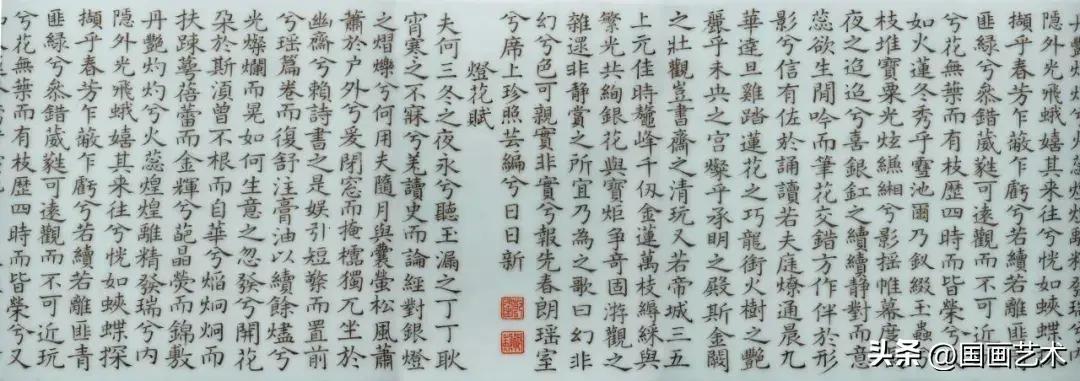 隱外光飛蛾嬉其来往兮恍如蛺
擷乎春芳乍蔽乍虧兮若續若離匪
匪緑兮叅錯葳蕤可遠觀而不可近
兮花無葉而有枝歷四時而皆榮兮
如火蓮冬秀乎雪池爾乃釵綴玉蟲
枝堆寶粟光炫縑緗兮影揺帷幕度
夜之迢迢兮喜銀釭之續續靜對而意
蕊欲生閒吟而筆花交錯方作伴於形
影兮信有佐於誦讀若夫庭燎通晨九
華達旦雞踏蓮花之巧龍銜火樹之艷
麗乎未央之宮燦乎承明之殿斯金闕
之壯觀豈書齋之清玩又若帝城三五
上元佳時鼇峰千仭金蓮萬枝縟綵與
繁光共絢銀花與寶炬争奇固游觀之
雜遝非靜賓之所宜乃為之歌曰幻非
幻兮色可親實非實兮報先春朗瑶室
兮席上珍照芸編兮日日新
燈花賦
夫何三冬之夜永兮聽玉漏之丁丁耿
宵寒之不寐兮羌讀史而論經對銀燈
之熠爍兮何用夫隨月與囊螢松風蕭
蕭於户外兮爰閉窓而掩櫺獨兀坐於
幽齋兮賴詩書之是娱引短檠而置前
兮瑶篇卷而復舒注膏油以續餘燼兮
光燦爛而晃如何生意之忽發兮開花
朵於斯湏曾不根而自華兮焰炯炯而
扶踈萼蓓蕾而金輝兮蕋晶熒而錦敷
丹艷灼灼兮火蕊煌煌離精發瑞兮内
隱外光飛蛾嬉其来往兮恍如蛺蝶探
擷乎春芳乍蔽乍虧兮若續若離匪青
匪緑兮叅錯葳蕤可遠觀而不可近玩
兮花無葉而有枝歷四時而皆榮兮又
头条@国画艺术